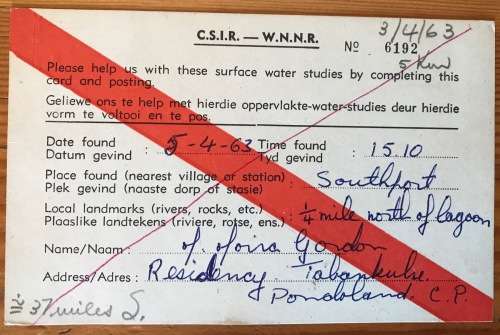 3/4/63
C.S.I.R. — W.N.N.R.
Nº 6192
Please help us with these surface water studies by completing this
card and posting.
Geliewe ons te help met hierdie oppervlakte-water-studies deur hierdie
vorm te voltooi en te pos.
Date found
Datum gevind : 5-4-63 Time found
Tyd gevind : 15.10
Place found (nearest village or station)
Plek gevind (naaste dorp of stasie) : Southport
Local landmarks (rivers, rocks, etc.)
Plaaslike landtekens (riviere, rotse, ens.) : ¼ mile north of lagoon
Name/Naam : Moira Gordon
Address/Adres : Residency Tabankulu.
Pondoland. C.P.
37 miles S.